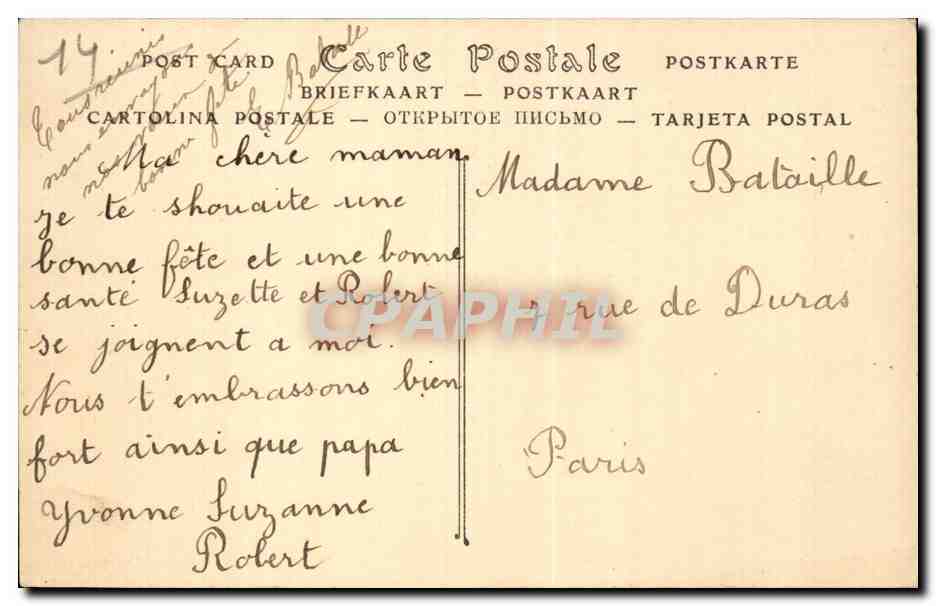 14
POST CARD Carte Postale POSTKARTE
BRIEFKAART — POSTKAART
CARTOLINA POSTALE — ОТКРЫТОЕ ПИСЬМО — TARJETA POSTAL
Tous réunis
nous
bonne fête
Bataille
Ma chère maman
je te shouaite une
bonne fête et une bonne
santé Suzette et Robert
se joignent a moi.
Nous t'embrassons bien
fort ainsi que papa
Yvonne Suzanne
Robert
Madame Bataille
7 rue de Duras
Paris
CPAPHIL